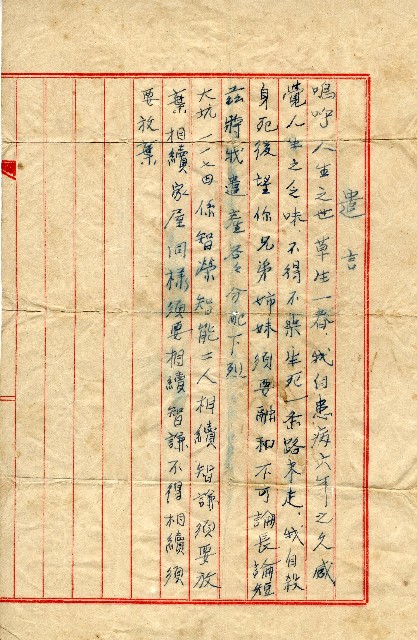 遺言
嗚呼人生之世草生一春.我付患病六年之久感
覺人生之乏味不得不樂生死一条路來走.我自殺
身死後望你兄弟姉妹須要酬和不可論長論短
茲將我遺產各々分配下烈
大坑一一七四係智榮智能二人相續智謙須要放
棄相續家屋同様須要相續智謙不得相續須
要放棄